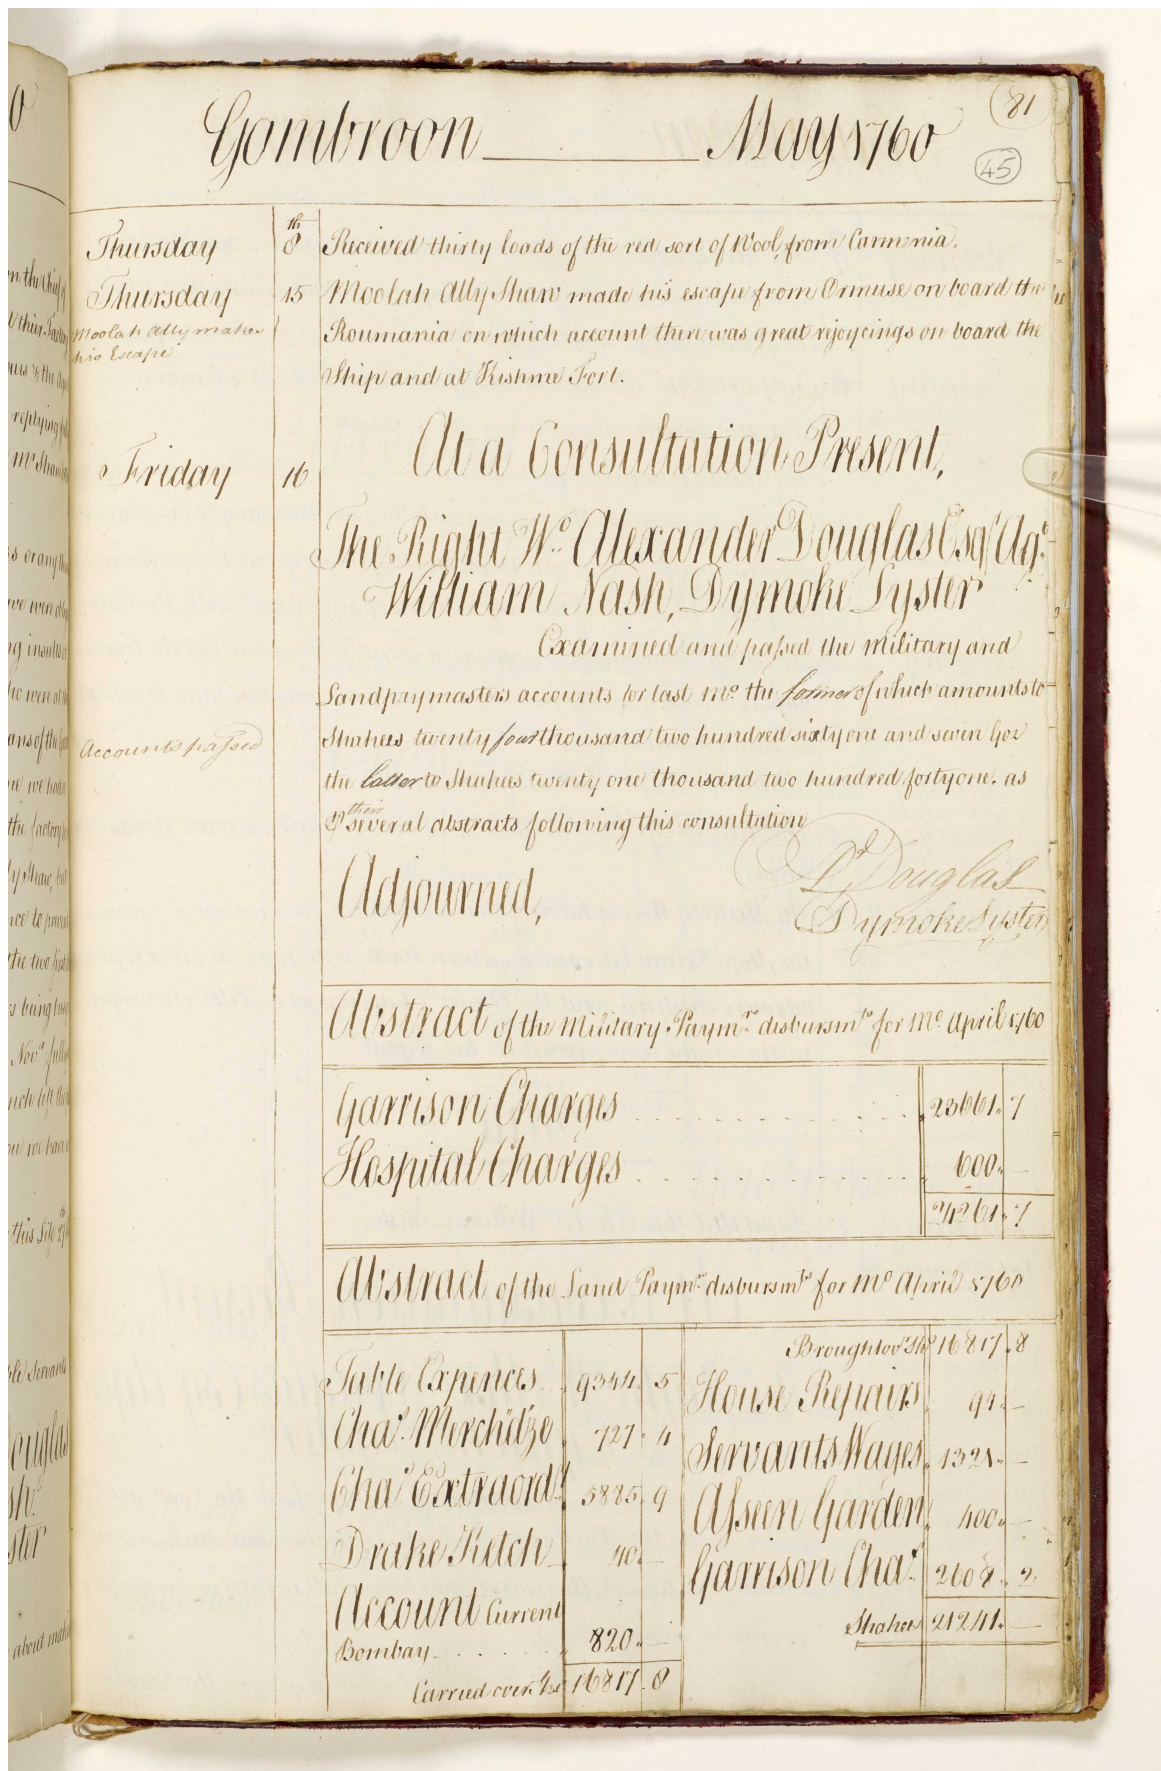 81
Gambroon May 1760
45
Thursday 8th Received thirty loads of the red sort of Wool, from Carmenia.
Thursday 15 Moolah Ally Shaw made his escape from Ormuse on board the
Moolah Ally makes his Escape
Roumania on which account there was great rejoycings on board the
Ship and at Kishme Fort.
Friday 16 At a Consultation Present,
The Right Wo. Alexander Douglas Esqr. Agt.
William Nash, Dymoke Lyster
Examined and passed the Military and
Landpaymasters accounts for last Mo. the former of which amounts to
Accounts passed
Shahees twenty four thousand two hundred sixty one and seven Goz
the latter to Shahees twenty one thousand two hundred fortyone. as
P their several abstracts following this consultation
Adjourned,
Ad Douglas
Dymoke Lyster
Abstract of the Military Paymrs. disbursmts for Mo. April 1760
Garrison Charges 23661. 7
Hospital Charges 600. —
24261. 7
Abstract of the Land Paymrs. disbursmts for Mo April 1760
Table Expences 9344. 5
Chas. Merchd'ze 727. 4
Chas Extraordy. 5885. 9
Drake Ketch 40. —
Account Current
Bombay 820. —
Carried over Shs 16817. 8
Brought over Shs 16817. 8
House Repairs 94. —
Servants Wages 1321. —
Asseen Garden 400. —
Garrison Chas. 2608. 2
Shahees 21241. —